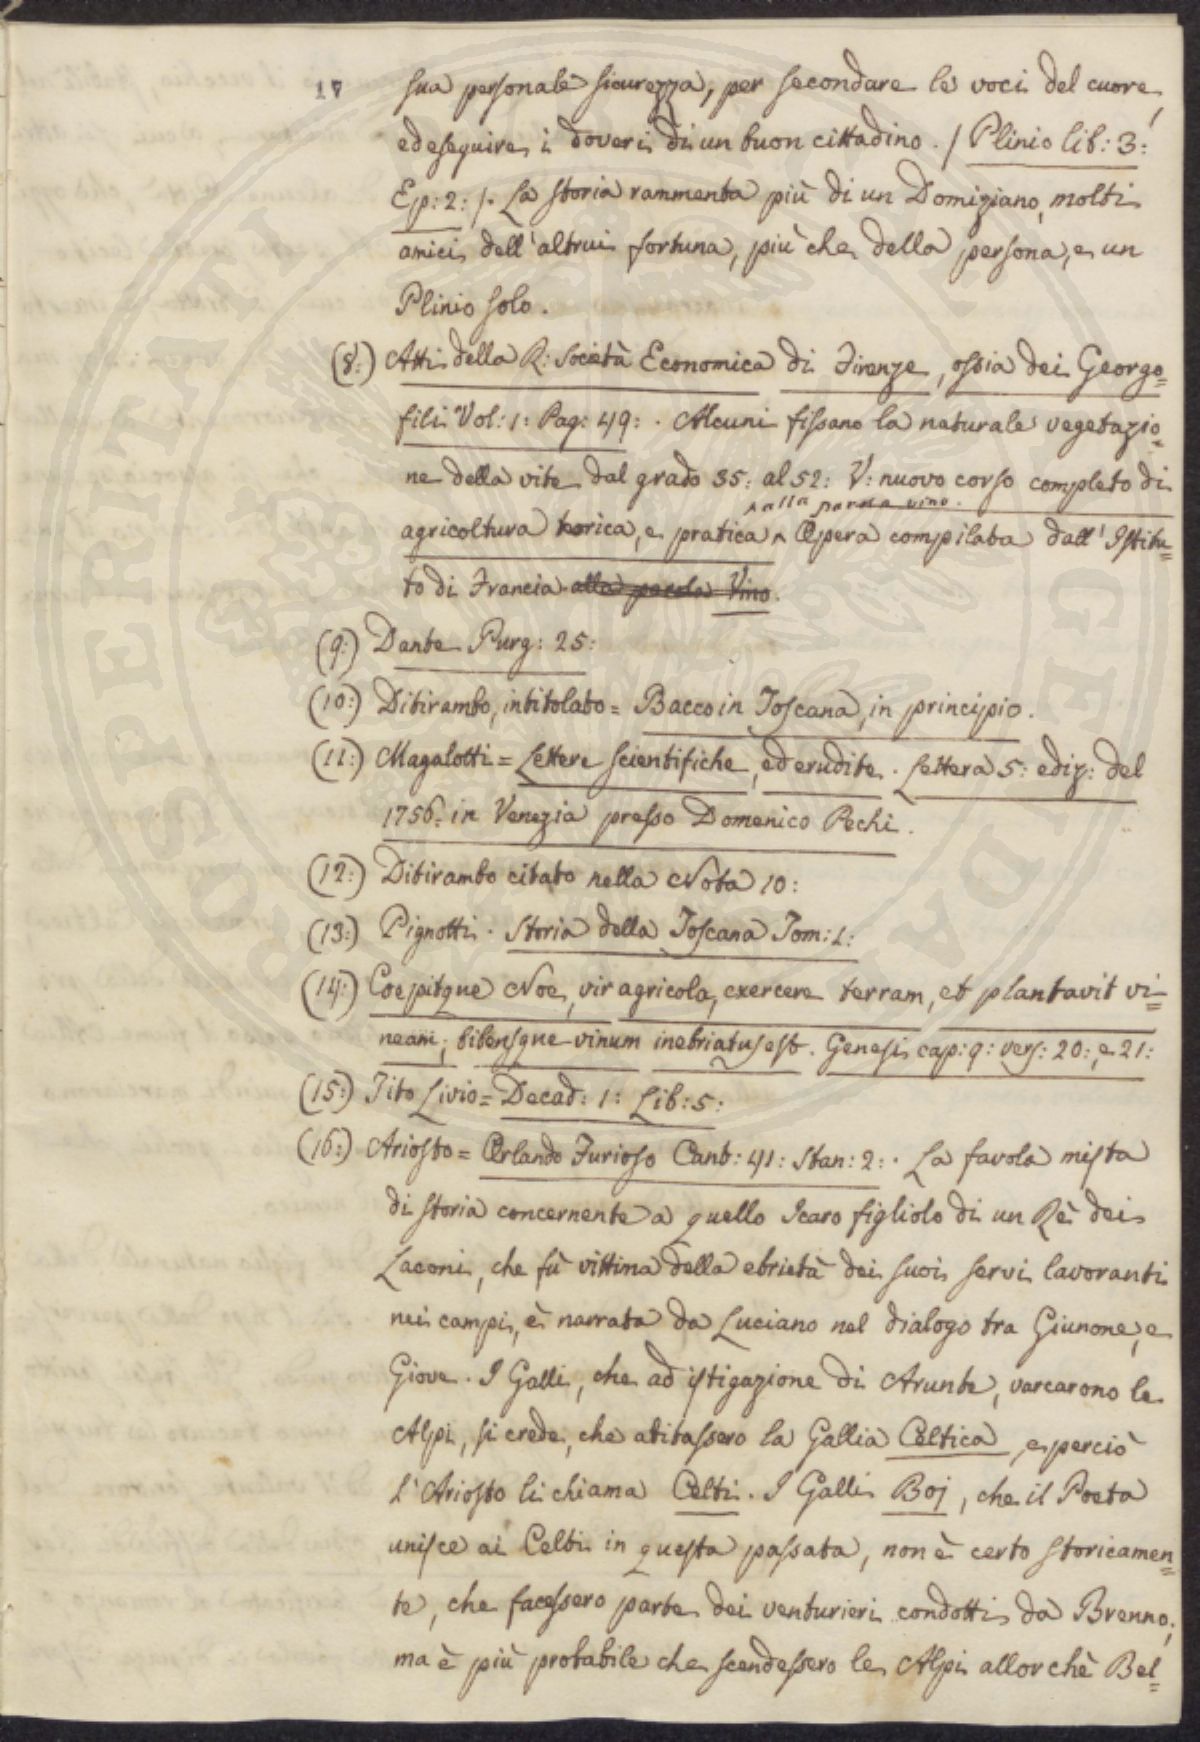 17
sua personale sicurezza, per secondare le voci del cuore,
ed eseguire i doveri di un buon cittadino. / Plinio lib: 3:
Ep: 2: /. La storia rammenta più di un Domiziano, molti
amici dell'altrui fortuna, più che della persona, e un
Plinio solo.
(8:) Atti della R: Società Economica di Firenze, ossia dei Georgo=
fili Vol: 1: Pag: 49: . Alcuni fissano la naturale vegetazio=
ne della vite dal grado 35: al 52: V: nuovo corso completo di
alla parola vino.
agricoltura teorica, e pratica ^ Opera compilata dall'Istitu=
to di Francia alla parola Vino.
(9:) Dante Purg: 25:
(10:) Ditirambo, intitolato = Bacco in Toscana, in principio.
(11:) Magalotti = Lettere scientifiche, ed erudite. Lettera 5: ediz: del
1756: in Venezia presso Domenico Pechi.
(12:) Ditirambo citato nella Nota 10:
(13:) Pignotti. Storia della Toscana Tom: 1:
(14:) Coepitque Noe, vir agricola, exercere terram, et plantavit vi=
neam, bibensque vinum inebriatus est. Genesi cap: 9: vers: 20: e 21:
(15:) Tito Livio = Decad: 1: Lib: 5:
(16:) Ariosto = Orlando Furioso Cant: 41: Stan: 2: . La favola mista
di storia concernente a quello Icaro figliolo di un Rè dei
Laconi, che fù vittima della ebrietà dei suoi servi lavoranti
nei campi, è narrata da Luciano nel dialogo tra Giunone, e
Giove. I Galli, che ad istigazione di Arunte, varcarono le
Alpi, si crede, che abitassero la Gallia Celtica, e perciò
l'Ariosto li chiama Celti. I Galli Boj, che il Poeta
unisce ai Celti in questa passata, non è certo storicamen=
te, che facessero parte dei venturieri condotti da Brenno;
ma è più probabile che scendessero le Alpi allorchè Bel=
PROSPERITATI AUGENDAE